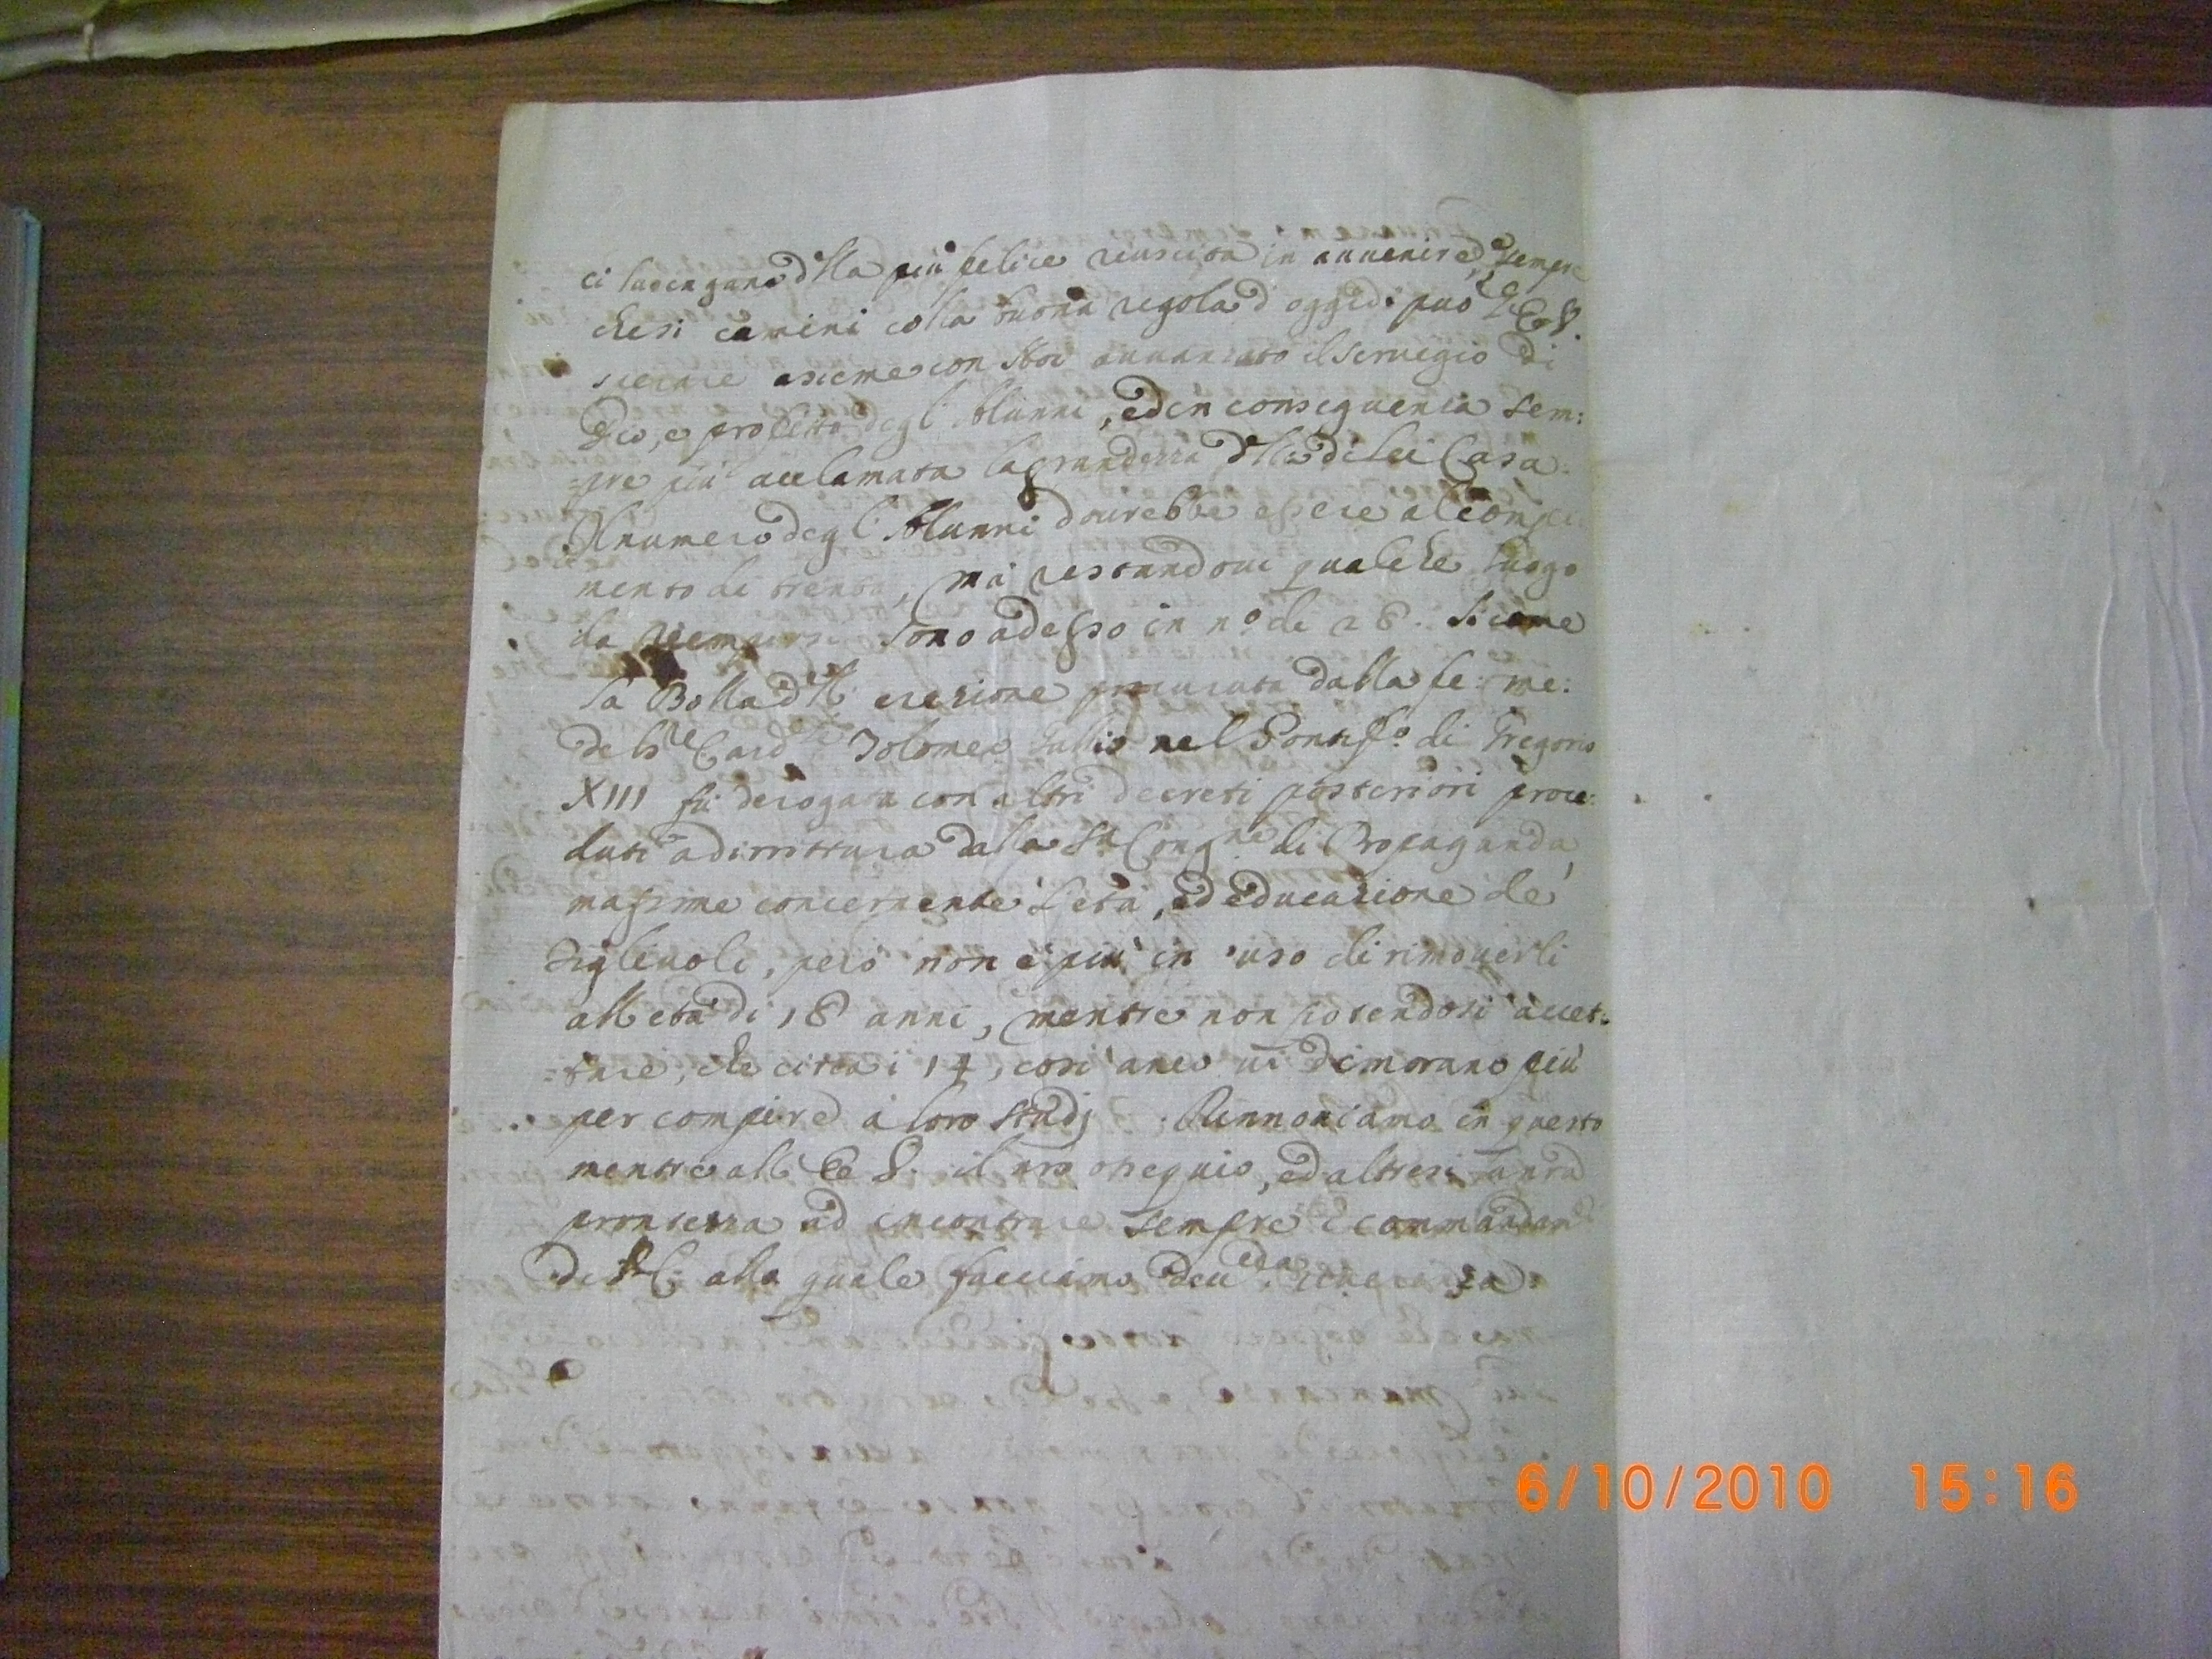 ci lusingano d'lla più felice riuscita in auuenire, e sempre
che si camini colla buona regola d'oggidi può l'E. V.
sicurare asieme con Noi auuanzato il seruigio di
Dio, e profitto degl'Alunni, ed in conseguenza sem:
=pre più acclamata la grandezza d'lla di lei Casa.
Il numero degl'Alunni dourebbe essere al compi
mento di trenta, mà restandoui qualche luogo
da riempirsi sono adesso in n.o di 28. Sicome
la Bolla d'll' erezione procurata dalla fe: me:
del Card.le Tolomeo Gallio nel Pontif.o di Gregorio
XIII fù derogata con altri decreti posteriori proce:
duti adirittura dalla S. Cong.ne di Propaganda
massime concernente l'età, ed educazione de'
Figliuoli, però non è più in uso di rimouerli
all'età di 18 anni, mentre non potendosi accet:
=tare, che circa i 14, così anco ui dimorano più
per compire à loro studj. Rinnouiamo in questo
mentre all'E. V. il nro ossequio, ed altresi una
prontezza ad incontrare sempre i commandam.
di V. E. alla quale facciamo deu riuerenza
6/10/2010 15:16